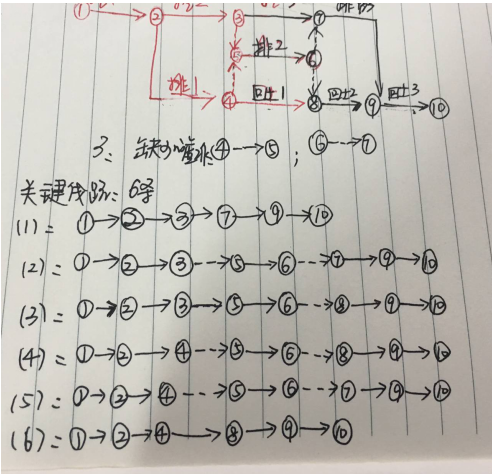 ① ② ③ ⑦
⑤ 排2 ⑥
排1 ④ 回土1 ⑧ 回土2 ⑨ 回土3 ⑩
3: 缺少 ④ --> ⑤ ; ⑥ --> ⑦
关键线路: 6条
(1)= ①→②→③→⑦→⑨→⑩
(2)= ①→②→③-->⑤→⑥-->⑦→⑨→⑩
(3)= ①→②→③-->⑤→⑥-->⑧→⑨→⑩
(4)= ①→②→④-->⑤→⑥-->⑧→⑨→⑩
(5)= ①→②→④-->⑤→⑥-->⑦→⑨→⑩
(6)= ①→②→④→⑧→⑨→⑩